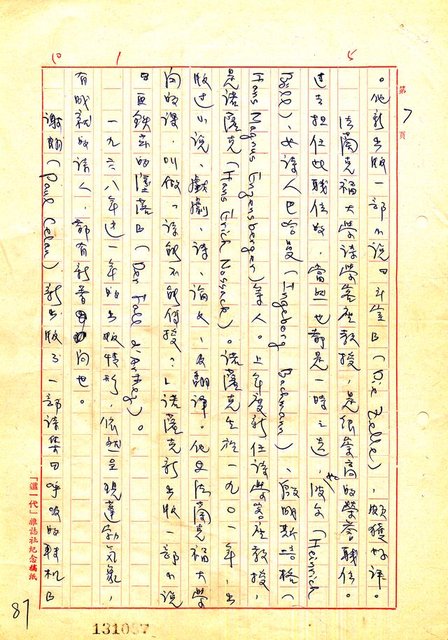 第 7 頁
。他新出版一部小說『斗室』(Die Zelle),頗獲好評。
法蘭克福大學詩學客座教授,是很崇高的榮譽職位。
過去担任此職位的,當然也都是一時之選,波爾(Heinrich
Böll)、女詩人巴哈曼(Ingeborg Bachmann)、殷明斯培格(
Hans Magnus Enzensberger)等人。上年度新任詩學客座教授,
是諾薩克(Hans Erich Nossack)。諾薩克生於一九〇一年,出
版過小說、戲劇、詩、論文、及翻譯。他在法蘭克福大學
開的課,叫做「詩能不能傳授?」諾薩克新出版一部小說
『 鐵 的 落』(Der Fall d'Arthez)。
一九六八年這一年的出版情形,依然呈現蓬勃氣象,
有成就的詩人,都有新書問世。
謝朗(Paul Celan)新出版了一部詩集『呼吸的轉機』
「這一代」雜誌社紀念稿紙
87
131097